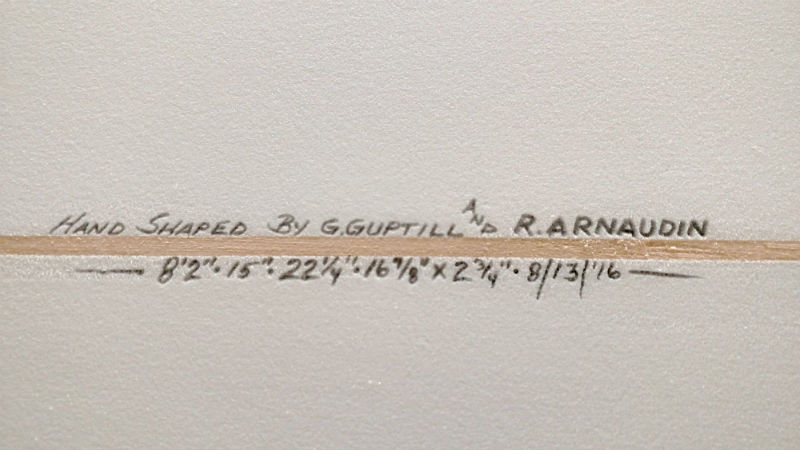 HAND SHAPED BY G.GUPTILL AND R.ARNAUDIN
— 8'2"·15"·22¼"·16⅞"x2¾"·8/13/'16 —